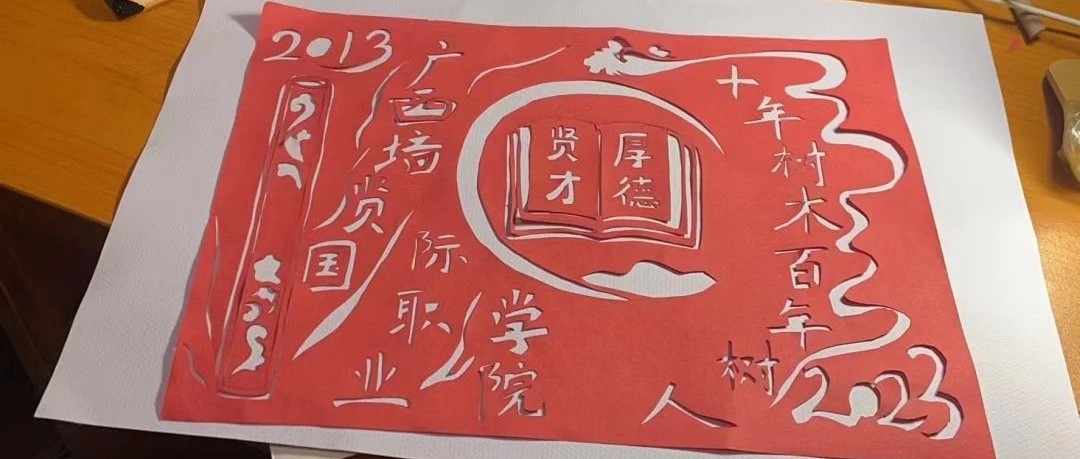 2013
广西墙贤国际职业学院
厚德
贤才
十年树木百年树人
2023